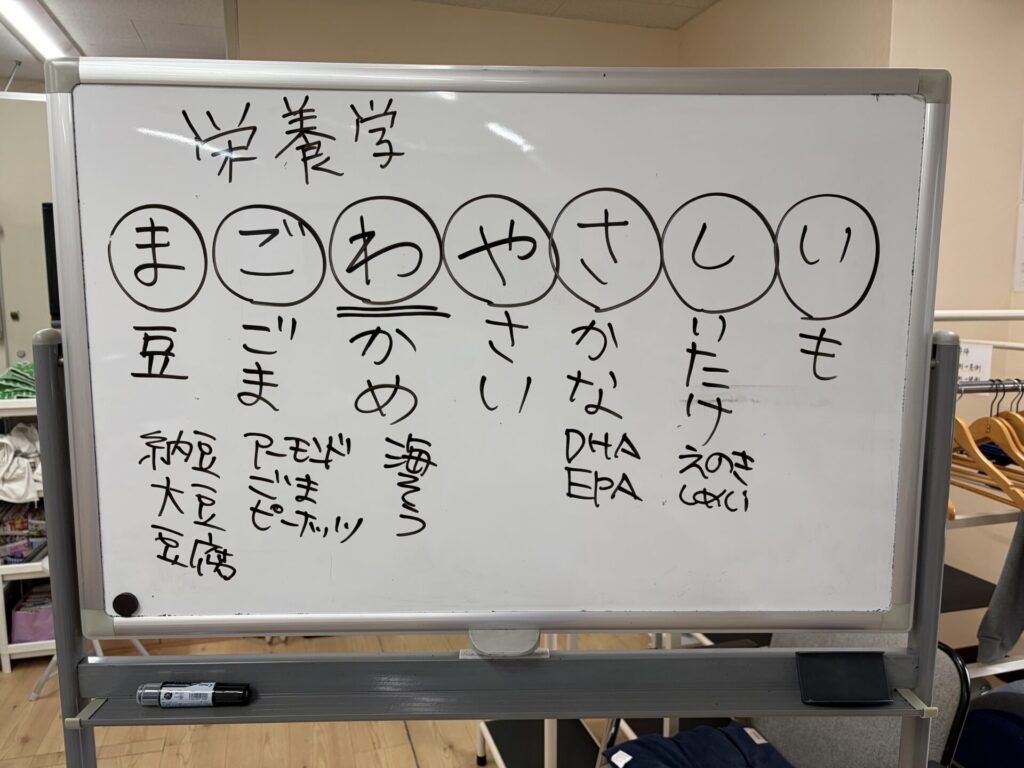 栄養学
まごわやさしい
豆
ごま
かめ
さい
かな
いたけ
も
納豆
大豆
豆腐
アーモンド
ごま
ピーナッツ
海そう
DHA
EPA
えのき
しめじ